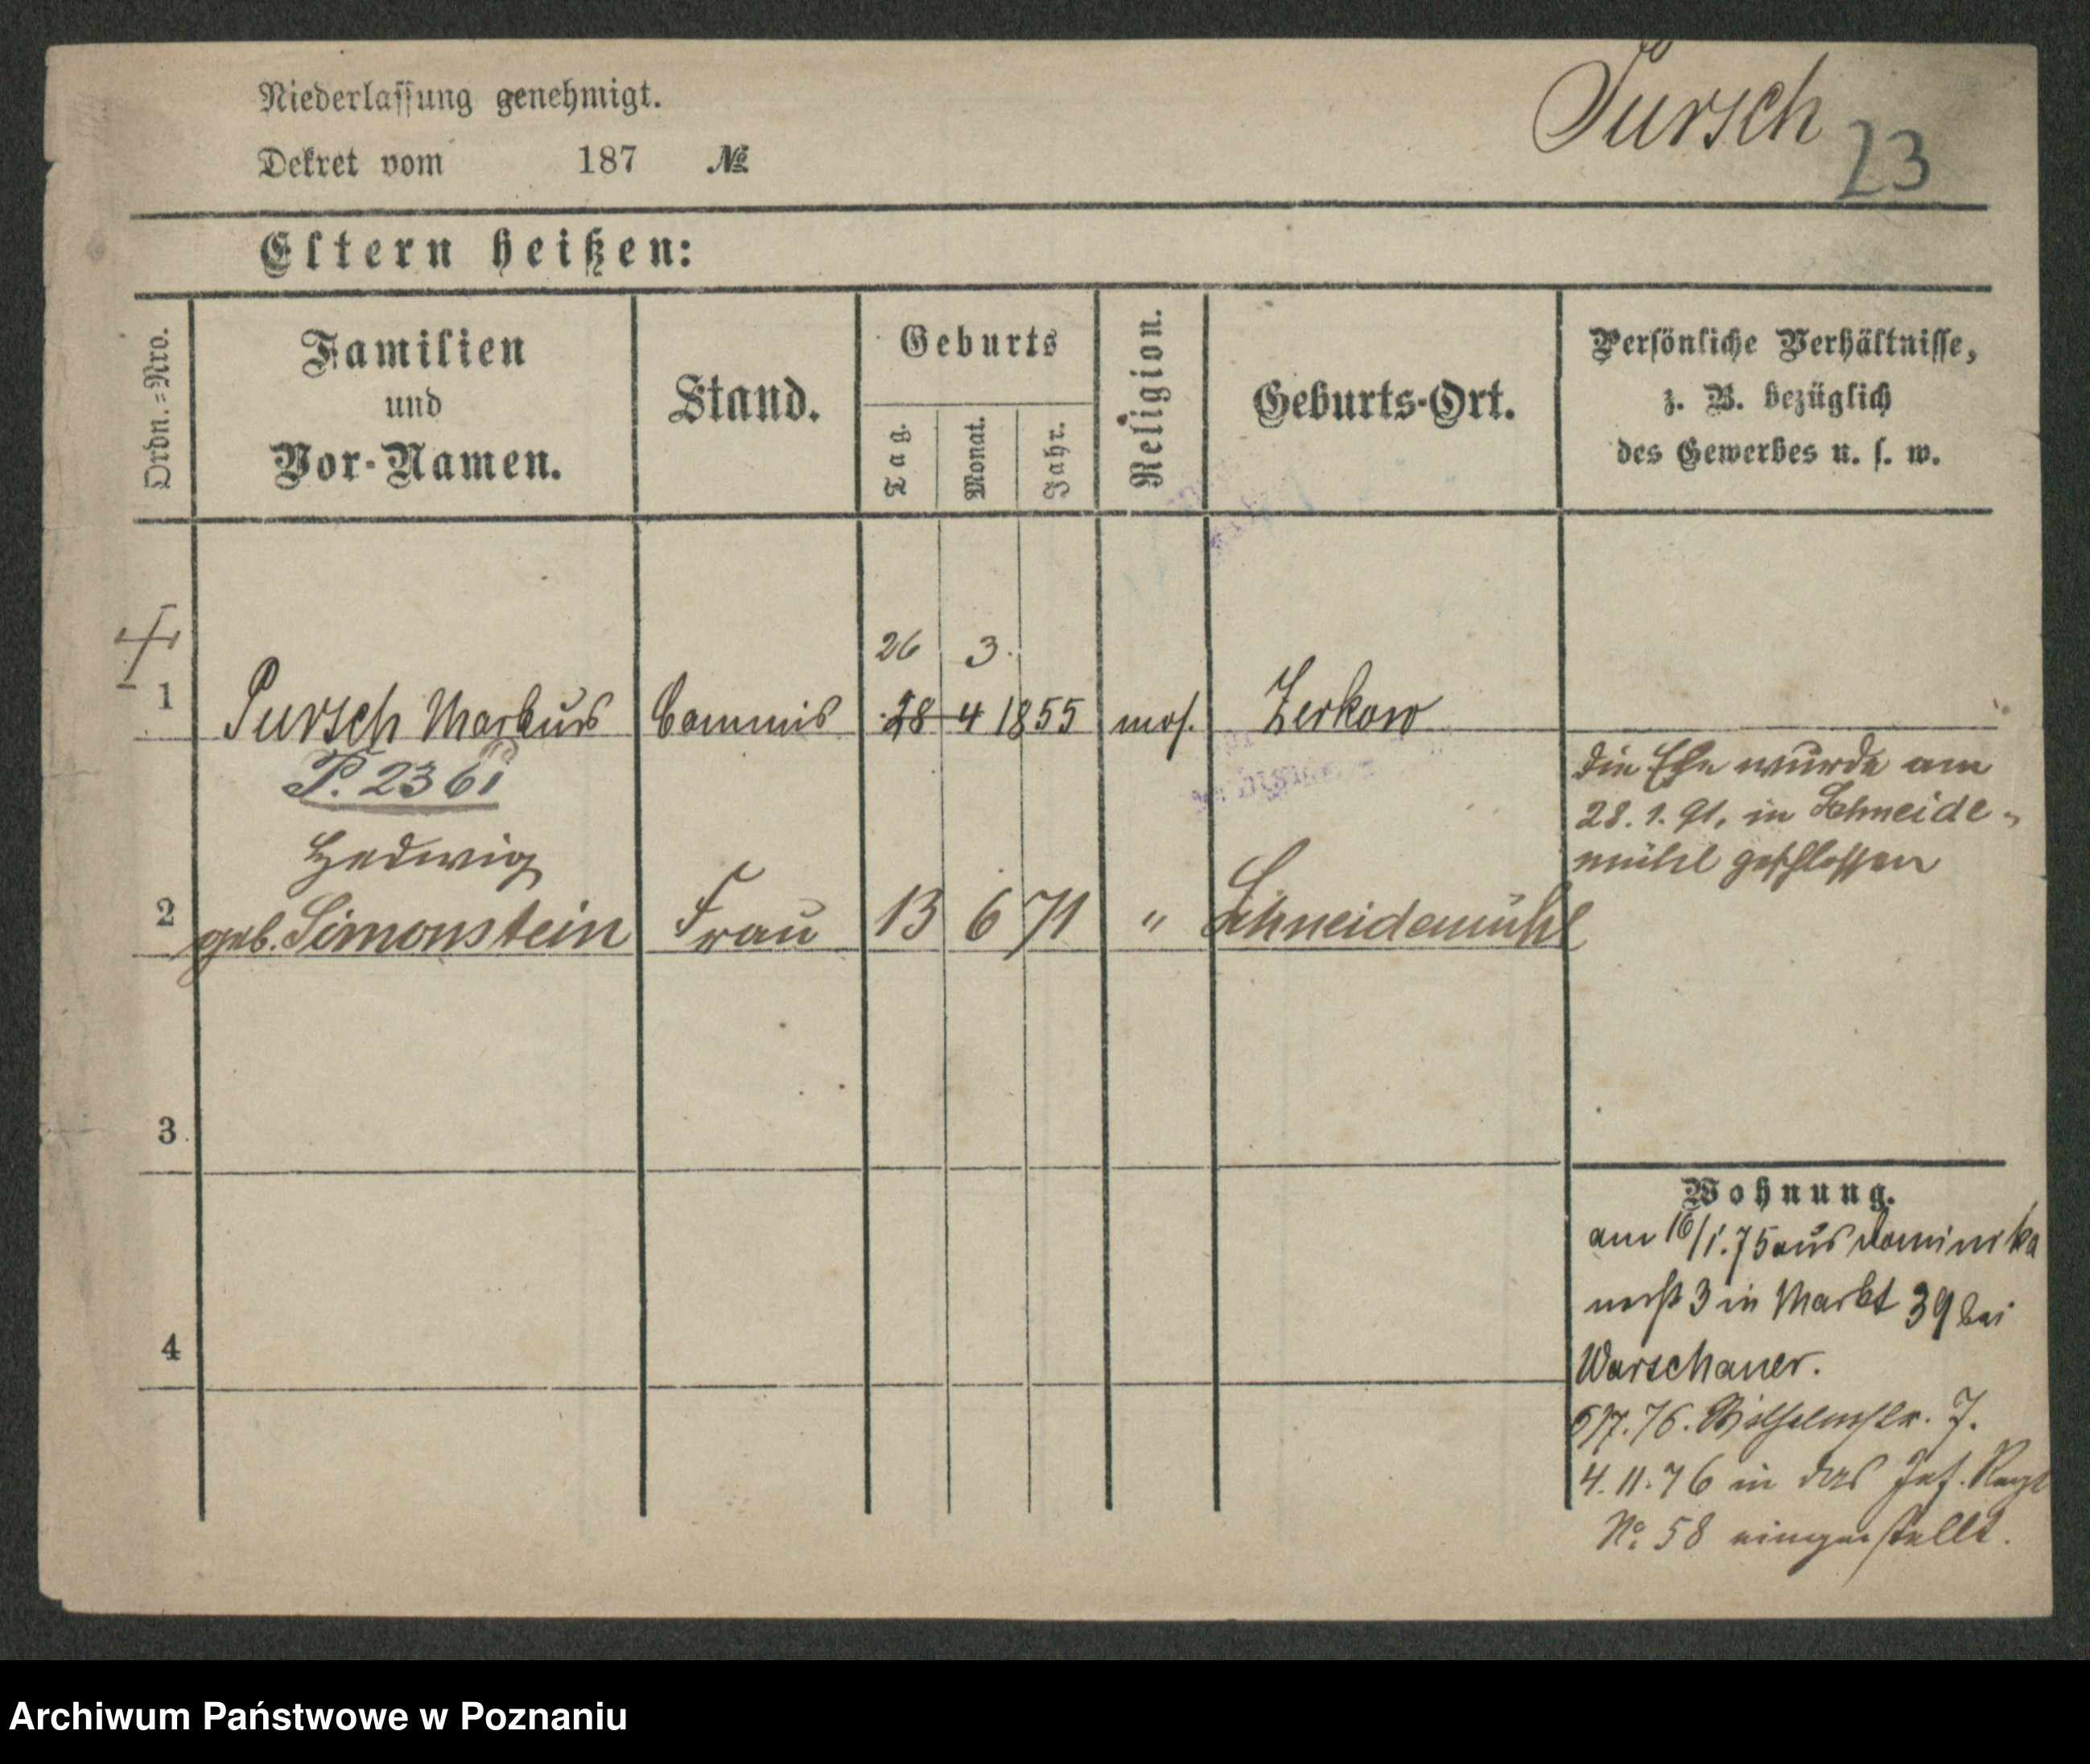 Niederlassung genehmigt.
Pursch
Dekret vom 187 №
23
Eltern heißen:
Ordn.=Nro.
Familien
und
Vor-Namen.
Stand.
Geburts
Tag.
Monat.
Jahr.
Religion.
Geburts-Ort.
Persönliche Verhältnisse,
z. B. bezüglich
des Gewerbes u. s. w.
26 3.
1 Pursch Markus Commis 28 4 1855 mos. Zerkow
P. 2361
Hedwig
2 geb. Simonstein Frau 13 6 71 " Schneidemühl
die Ehe wurde am
28.1.91, in Schneide-
mühl geschlossen
3
4
Wohnung.
am 16/1.75 aus Dominika
nerst 3 in Markt 39 bei
Warschauer.
5/7.76. Wilhelmstr. 7.
4.11.76 in das Inf. Regt
No. 58 eingestellt.
Archiwum Państwowe w Poznaniu